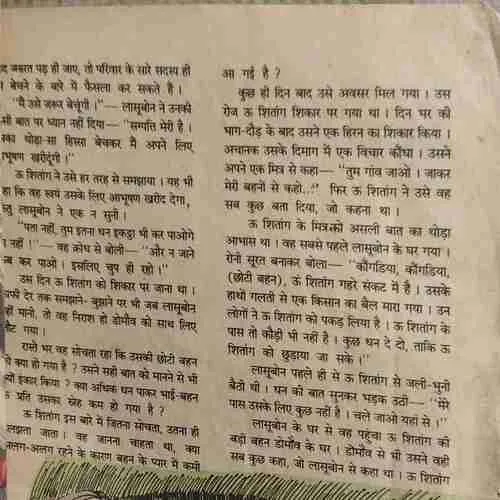 द जरूरत पड़ ही जाए, तो परिवार के सारे सदस्य ही
बेचने के बारे में फैसला कर सकते हैं ।
"मैं उसे जरूर बेचूंगी ।"— लासुबोन ने उनकी
सी बात पर ध्यान नहीं दिया— "सम्पत्ति मेरी है ।
सका थोड़ा-सा हिस्सा बेचकर मैं अपने लिए
भूषण खरीदूंगी ।"
ऊ शितांग ने उसे हर तरह से समझाया । यह भी
हा कि वह स्वयं उसके लिए आभूषण खरीद देगा,
तु लासुबोन ने एक न सुनी ।
"पता नहीं, तुम इतना धन इकट्ठा भी कर पाओगे
नहीं !"— वह क्रोध से बोली— "और न जाने
ब कर पाओ । इसलिए चुप ही रहो ।"
उस दिन ऊ शितांग को शिकार पर जाना था ।
फी देर तक समझाने- बुझाने पर भी जब लासुबोन
हीं मानी, तो वह निराश हो डोमौव को साथ लिए
ट गया ।
रास्ते भर वह सोचता रहा कि उसकी छोटी बहन
क्या हो गया है ? उसने सही बात को मानने से भी
यों इंकार किया ? क्या अधिक धन पाकर भाई-बहन
प्रति उसका स्नेह कम हो गया है ?
ऊ शितांग इस बारे में जितना सोचता, उतना ही
लझता जाता । वह जानना चाहता था, क्या
लग-अलग रहने के कारण बहन के प्यार में कमी
आ गई है ?
कुछ ही दिन बाद उसे अवसर मिल गया । उस
रोज ऊ शितांग शिकार पर गया था । दिन भर की
भाग-दौड़ के बाद उसने एक हिरन का शिकार किया ।
अचानक उसके दिमाग में एक विचार कौंधा । उसने
अपने एक मित्र से कहा— "तुम गांव जाओ । जाकर
मेरी बहनों से कहो..." फिर ऊ शितांग ने उसे वह
सब कुछ बता दिया, जो कहना था ।
ऊ शितांग के मित्र को असली बात का थोड़ा
आभास था । वह सबसे पहले लासुबोन के घर गया ।
रोनी सूरत बनाकर बोला— "कौंगडिया, कौंगडिया,
(छोटी बहन), ऊ शितांग गहरे संकट में है । उसके
हाथों गलती से एक किसान का बैल मारा गया । उन
लोगों ने ऊ शितांग को पकड़ लिया है । ऊ शितांग के
पास तो कौड़ी भी नहीं है । कुछ धन दे दो, ताकि ऊ
शितांग को छुड़ाया जा सके ।"
लासुबोन पहले ही से ऊ शितांग से जली-भुनी
बैठी थी । धन की बात सुनकर भड़क उठी— "मेरे
पास उसके लिए कुछ नहीं है । चले जाओ यहां से ।"
लासुबोन के घर से वह पहुंचा ऊ शितांग की
बड़ी बहन डोमौव के घर । डोमौव से भी उसने वही
सब कुछ कहा, जो लासुबोन से कहा था । ऊ शितांग